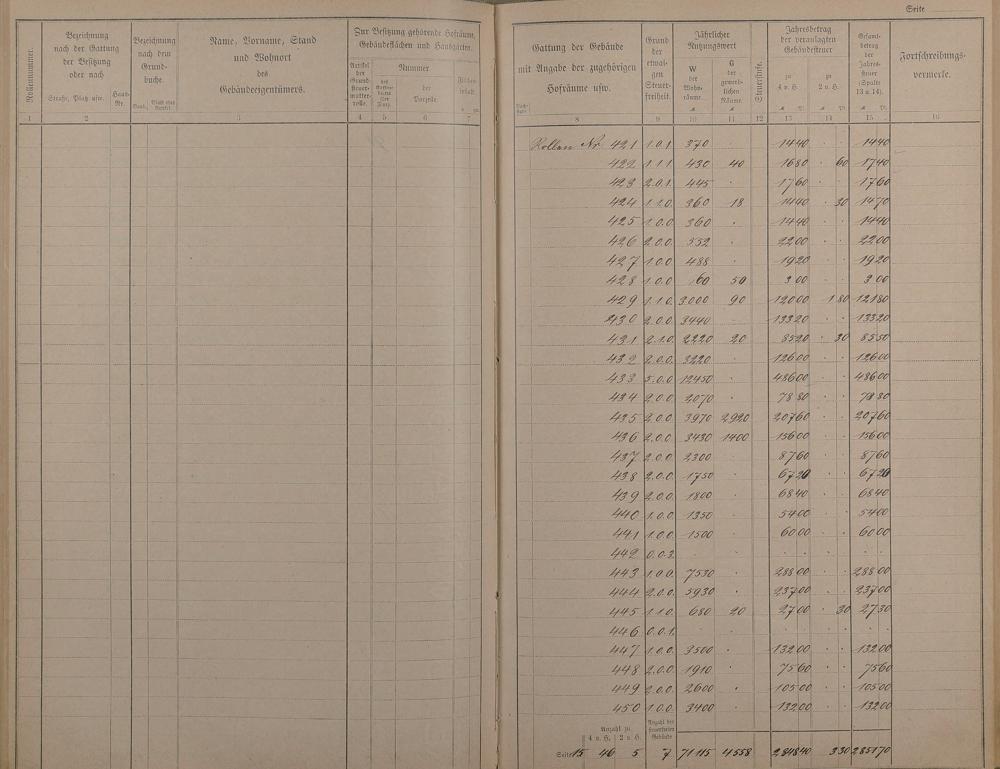 Seite
Rollennummer.
Bezeichnung
nach der Gattung
der Besitzung
oder nach
Straße, Platz usw. Haus-Nr.
Bezeichnung
nach dem
Grund-
buche.
Band. Blatt oder Artikel.
Name, Vorname, Stand
und Wohnort
des
Gebäudeeigentümers.
Zur Besitzung gehörende Hofräume,
Gebäudeflächen und Hausgärten.
Artikel der Grund-steuer-mutter-rolle.
Nummer
des Karten-blatts der Parz.
der Parzelle.
Flächen-inhalt.
Gattung der Gebäude
mit Angabe der zugehörigen
Hofräume usw.
Grund der etwai-gen Steuer-freiheit.
Jährlicher
Nutzungswert
W der Wohn-räume.
G der gewerb-lichen Räume.
Steuerstufe.
Jahresbetrag
der veranlagten
Gebäudesteuer
zu 4 v. H.
zu 2 v. H.
Gesamt-betrag der Jahres-steuer (Spalte 13 u. 14).
Fortschreibungs-
vermerke.
1 2 3 4 5 6 7 8 9 10 11 12 13 14 15 16
Rollen Nr. 421 1.0.1. 370 · 1440 · · 1440
422 1.1.1. 430 40 1680 · 60 1740
423 2.0.1. 445 · 1760 · · 1760
424 1.1.0. 360 18 1440 · 30 1470
425 1.0.0. 360 · 1440 · · 1440
426 2.0.0. 552 · 2200 · · 2200
427 1.0.0. 488 · 1920 · · 1920
428 1.0.0. 60 50 300 · · 300
429 1.1.0. 3000 90 12000 1 80 12180
430 2.0.0. 3440 · 13320 · · 13320
431 2.1.0. 2220 20 8520 · 30 8550
432 2.0.0. 3220 · 12600 · · 12600
433 5.0.0. 12450 · 48600 · · 48600
434 2.0.0. 2070 · 7880 · · 7880
435 2.0.0. 3970 2920 20760 · · 20760
436 2.0.0. 3430 1400 15600 · · 15600
437 2.0.0. 2300 · 8760 · · 8760
438 2.0.0. 1750 · 6720 · · 6720
439 2.0.0. 1800 · 6840 · · 6840
440 1.0.0. 1350 · 5400 · · 5400
441 1.0.0. 1500 · 6000 · · 6000
442 0.0.2. · · · · · ·
443 1.0.0. 7530 · 28800 · · 28800
444 2.0.0. 5930 · 23700 · · 23700
445 1.1.0. 680 20 2700 · 30 2730
446 0.0.1. · · · · · ·
447 1.0.0. 3500 · 13200 · · 13200
448 2.0.0. 1910 · 7560 · · 7560
449 2.0.0. 2600 · 10500 · · 10500
450 1.0.0. 3400 · 13200 · · 13200
Anzahl zu
4 v. H. 2 v. H.
Anzahl der steuerfreien Gebäude
Seite 15 46 5 7 71115 4558 284840 330 285170